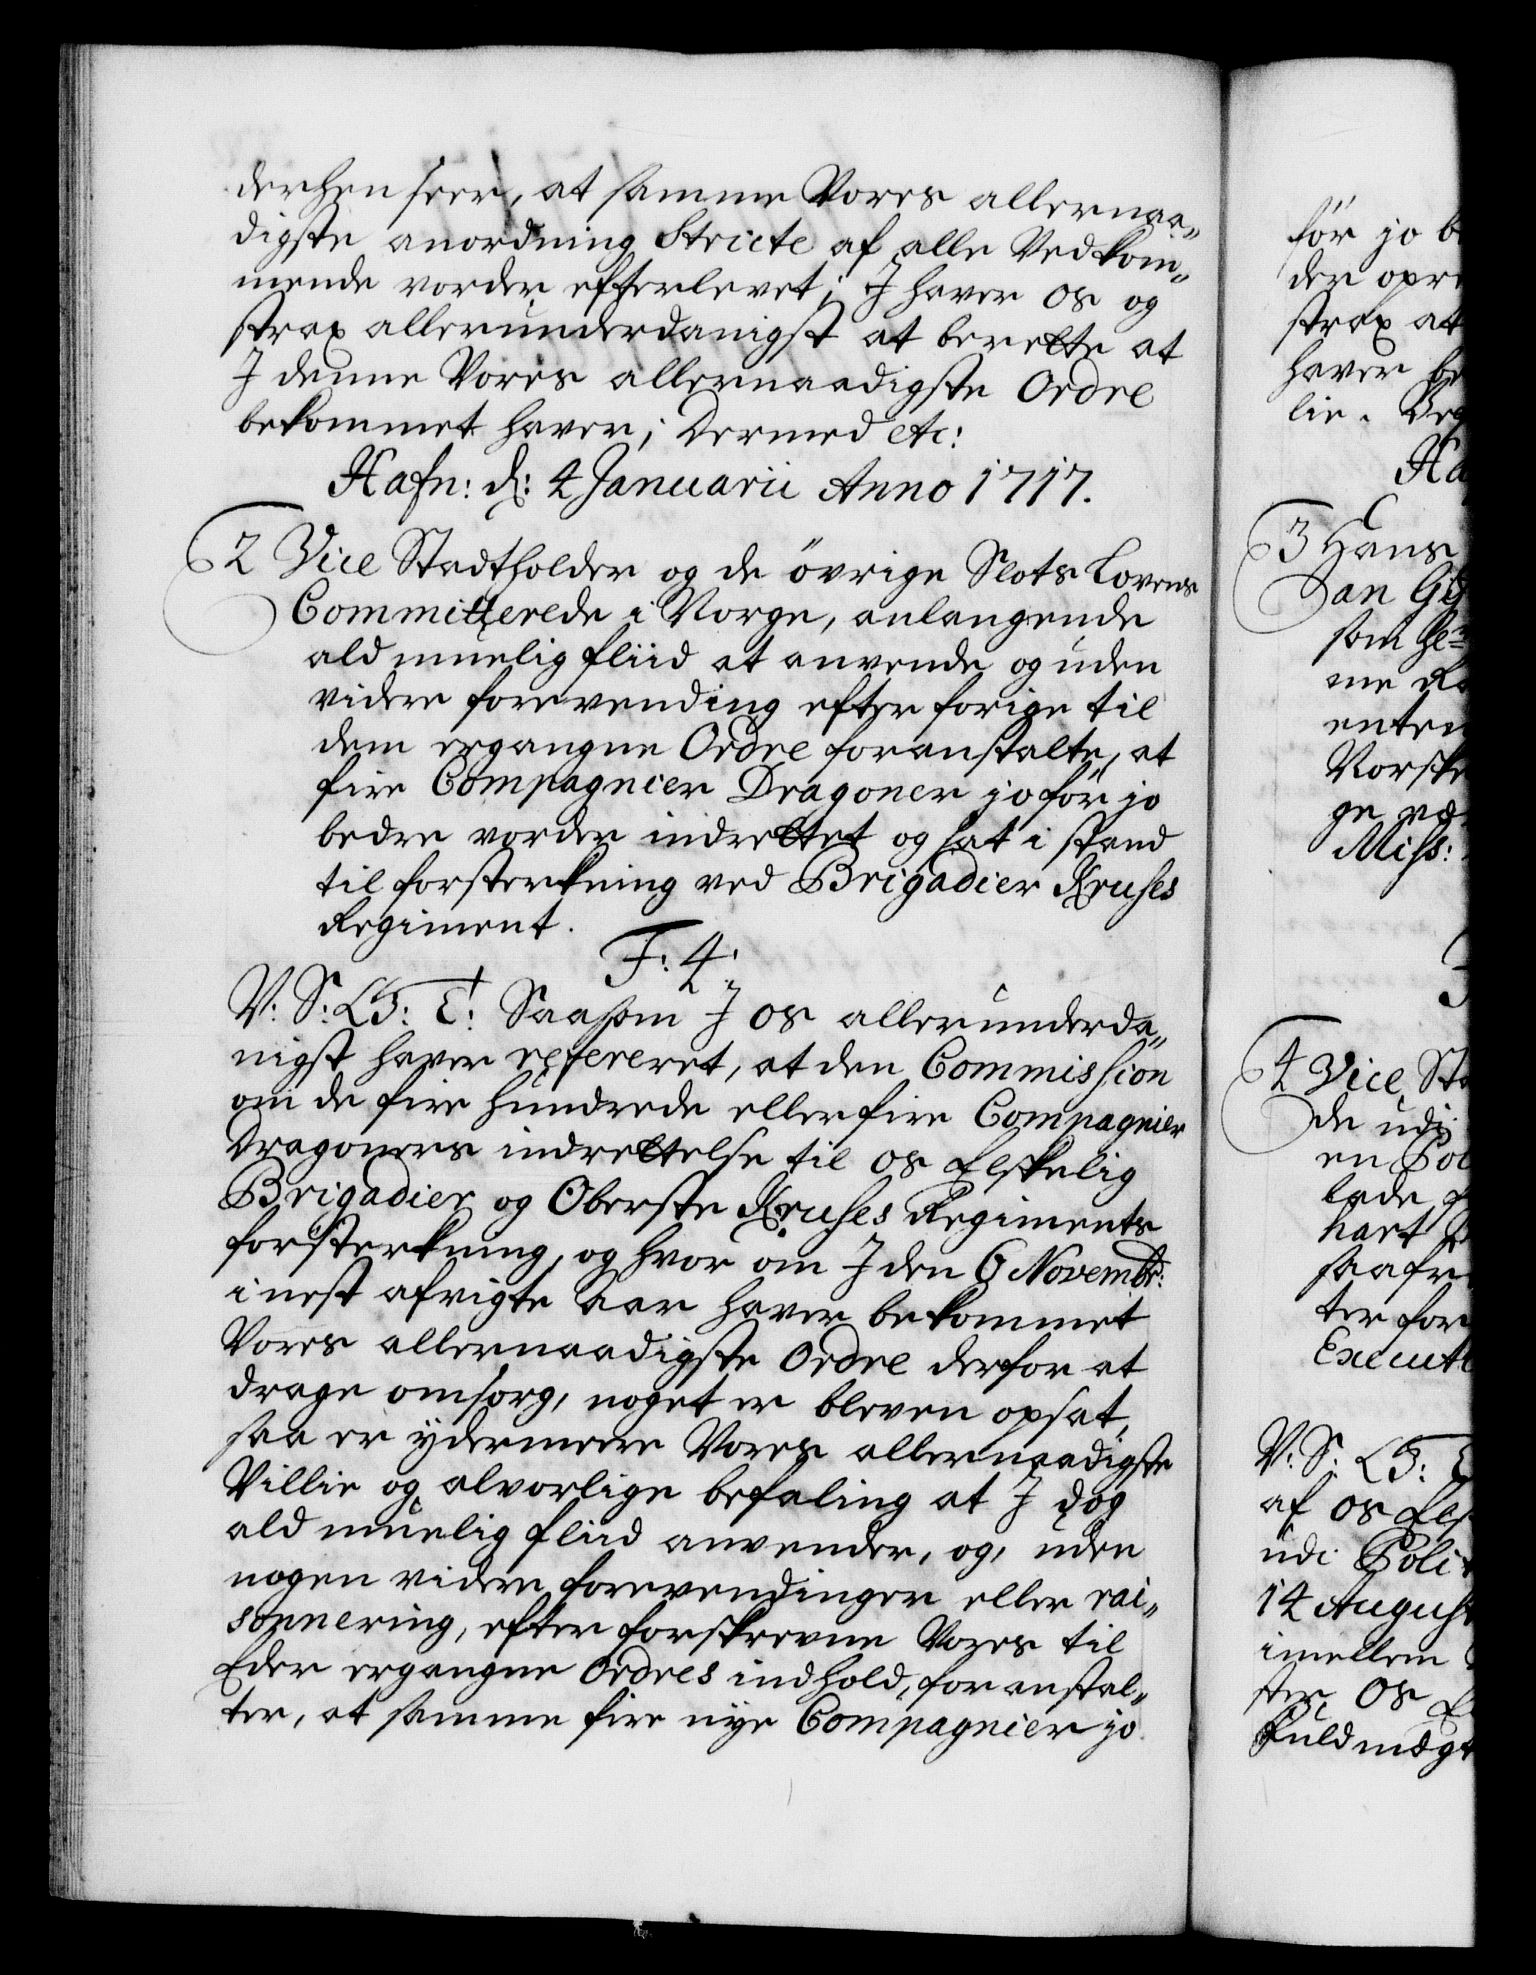 derhen seer, at samme Vores allernaa„
digste anordning Stricte af alle Vedkom„
mende vorder efterlevet; J haver os og
strax allerunderdanigst at berette at
J denne Vores allernaadigste Ordre
bekommet haver; Dermed etc:
Hafn: d: 4 Januarii Anno 1717.
2 Vice Stadtholder og de övrige Slots Lovens
Committerede i Norge, anlangende
ald muelig fliid at anvende og uden
videre forevending efter forige til
dem ergangne Ordre foranstalte, at
fire Compagnier Dragoner jo för jo
bedre vorder indrettet og sat i stand
til forsterkning ved Brigadier Kruses
Regiment.
F: 4:
V: S: G: T: Saasom J os allerunderda„
nigst haver refereret, at den Commission
om de fire hundrede eller fire Compagnier
Dragoners indrettelse til os Elskelig
Brigadier og Oberste Kruses Regiments
forsterkning, og hvor om J den 6 Novembr:
i nest afvigte Aar haver bekommet
Vores allernaadigste Ordre derfor at
drage omsorg, noget er bleven opsat,
saa er ydermere Vores allernaadigste
Villie og alvorlige befaling at J dog
ald muelig fliid anvender, og, uden
nogen videre forevendinger eller rai„
sonnering, efter forskrevne Vores til
Eder ergangne Ordres indhold, foranstal„
ter, at samme fire nye Compagnier jo
för jo
der opre
strax at
haver
lie.
Ha
3 Hans
an
som
me
enten
Norske
ge
Miss:
4 Vice Sta
de udi
en Pol
lade
hart
saafr
ter for
Executi
V: S: G: T
af os Els
udi Poli
14 August
imellem
ster os
Fuldmægt